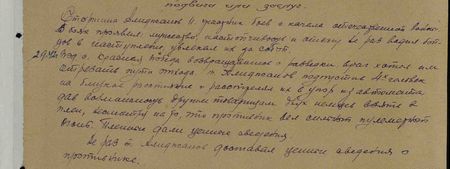 подвига или заслуг.
Старшина Амиджанов Н. участник боев с начала отечественной войны.
В боях проявил мужество, настойчивость и отвагу не раз водил бойцов в наступление, увлекая их за собой.
29.12. года, с. взвода возвращавшимся с разведки враг хотел им
отрезать пути отхода. т. Амиджанов подпустив 4х человек
на близкое расстояние и расстрелял их в упор из автомата
дав возможность другим товарищам двух немцев взять в
плен, несмотря на то, что противник вел сильный пулеметный
огонь. Пленные дали ценные сведения.
Не раз т. Амиджанов доставлял ценные сведения о
противнике.